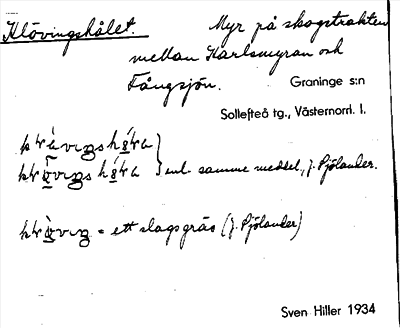 Klövingshålet. Myr på skogstrakten
mellan Karlsmyran och
Fångsjön.
Graninge s:n
Sollefteå tg., Västernorrl. l.
enl. samme meddel., J. Sjölander.
= ett slags gräs (J. Sjölander)
Sven Hiller 1934